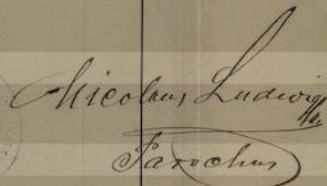 Nicolaus Ludwig
Parochus